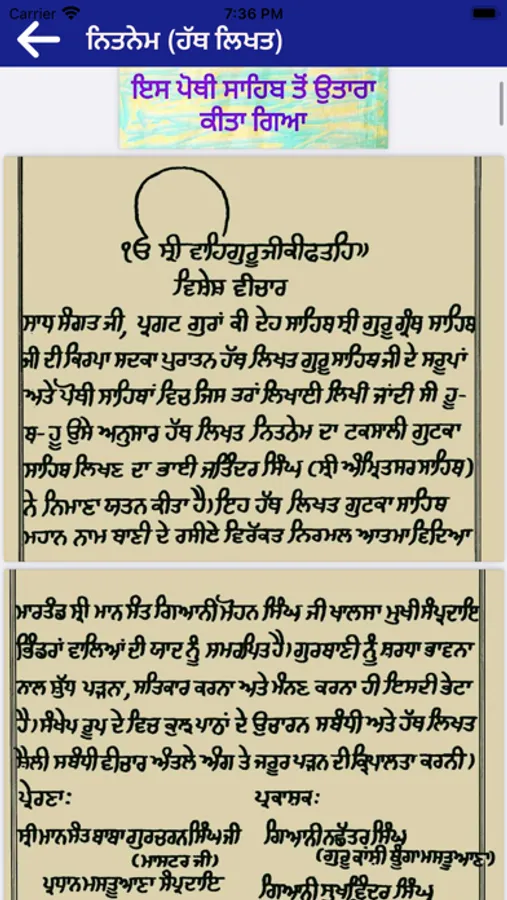 Carrier 7:36 PM
ਨਿਤਨੇਮ (ਹੱਥ ਲਿਖਤ)
ਇਸ ਪੋਥੀ ਸਾਹਿਬ ਤੋਂ ਉਤਾਰਾ
ਕੀਤਾ ਗਿਆ
ੴ ਸ੍ਰੀ ਵਾਹਿਗੁਰੂਜੀਕੀਫਤਹਿ॥
ਵਿਸ਼ੇਸ਼ ਵੀਚਾਰ
ਸਾਧ ਸੰਗਤ ਜੀ, ਪ੍ਰਗਟ ਗੁਰਾਂ ਕੀ ਦੇਹ ਸਾਹਿਬ ਸ੍ਰੀ ਗੁਰੂ ਗ੍ਰੰਥ ਸਾਹਿਬ
ਜੀ ਦੀ ਕਿਰਪਾ ਸਦਕਾ ਪੁਰਾਤਨ ਹੱਥ ਲਿਖਤ ਗੁਰੂ ਸਾਹਿਬ ਜੀ ਦੇ ਸਰੂਪਾਂ
ਅਤੇ ਪੋਥੀ ਸਾਹਿਬਾਂ ਵਿਚ ਜਿਸ ਤਰਾਂ ਲਿਖਾਈ ਲਿਖੀ ਜਾਂਦੀ ਸੀ ਹੂ-
ਬ-ਹੂ ਉਸੇ ਅਨੁਸਾਰ ਹੱਥ ਲਿਖਤ ਨਿਤਨੇਮ ਦਾ ਟਕਸਾਲੀ ਗੁਟਕਾ
ਸਾਹਿਬ ਲਿਖਣ ਦਾ ਭਾਈ ਜਤਿੰਦਰ ਸਿੰਘ (ਸ੍ਰੀ ਅੰਮ੍ਰਿਤਸਰ ਸਾਹਿਬ)
ਨੇ ਨਿਮਾਣਾ ਯਤਨ ਕੀਤਾ ਹੈ। ਇਹ ਹੱਥ ਲਿਖਤ ਗੁਟਕਾ ਸਾਹਿਬ
ਮਹਾਨ ਨਾਮ ਬਾਣੀ ਦੇ ਰਸੀਏ ਵਿਰੱਕਤ ਨਿਰਮਲ ਆਤਮਾ ਵਿਦਿਆ
ਮਾਰਤੰਡ ਸ੍ਰੀ ਮਾਨ ਸੰਤ ਗਿਆਨੀ ਮੋਹਨ ਸਿੰਘ ਜੀ ਖਾਲਸਾ ਮੁਖੀ ਸੰਪ੍ਰਦਾਇ
ਭਿੰਡਰਾਂ ਵਾਲਿਆਂ ਦੀ ਯਾਦ ਨੂੰ ਸਮਰਪਿਤ ਹੈ। ਗੁਰਬਾਣੀ ਨੂੰ ਸ਼ਰਧਾ ਭਾਵਨਾ
ਨਾਲ ਸ਼ੁੱਧ ਪੜਨਾ, ਸਤਿਕਾਰ ਕਰਨਾ ਅਤੇ ਮੰਨਣ ਕਰਨਾ ਹੀ ਇਸਦੀ ਭੇਟਾ
ਹੈ। ਸੰਖੇਪ ਰੂਪ ਦੇ ਵਿਚ ਕੁਲ ਪਾਠਾਂ ਦੇ ਉਚਾਰਨ ਸਬੰਧੀ ਅਤੇ ਹੱਥ ਲਿਖਤ
ਸ਼ੈਲੀ ਸਬੰਧੀ ਵੀਚਾਰ ਅੰਤਲੇ ਅੰਗ ਤੇ ਜ਼ਰੂਰ ਪੜਨ ਦੀ ਕ੍ਰਿਪਾਲਤਾ ਕਰਨੀ।
ਪ੍ਰੇਰਣਾ: ਪ੍ਰਕਾਸ਼ਕ:
ਸ੍ਰੀ ਮਾਨ ਸੰਤ ਬਾਬਾ ਗੁਰਚਰਨ ਸਿੰਘ ਜੀ ਗਿਆਨੀ ਨਛੱਤਰ ਸਿੰਘ
(ਮਾਸਟਰ ਜੀ) (ਗੁਰੂ ਕਾਂਸ਼ੀ ਬੁੰਗਾ ਮਸਤੂਆਣਾ)
ਪ੍ਰਧਾਨ ਮਸਤੂਆਣਾ ਸੰਪ੍ਰਦਾਇ ਗਿਆਨੀ ਸੁਖਵਿੰਦਰ ਸਿੰਘ